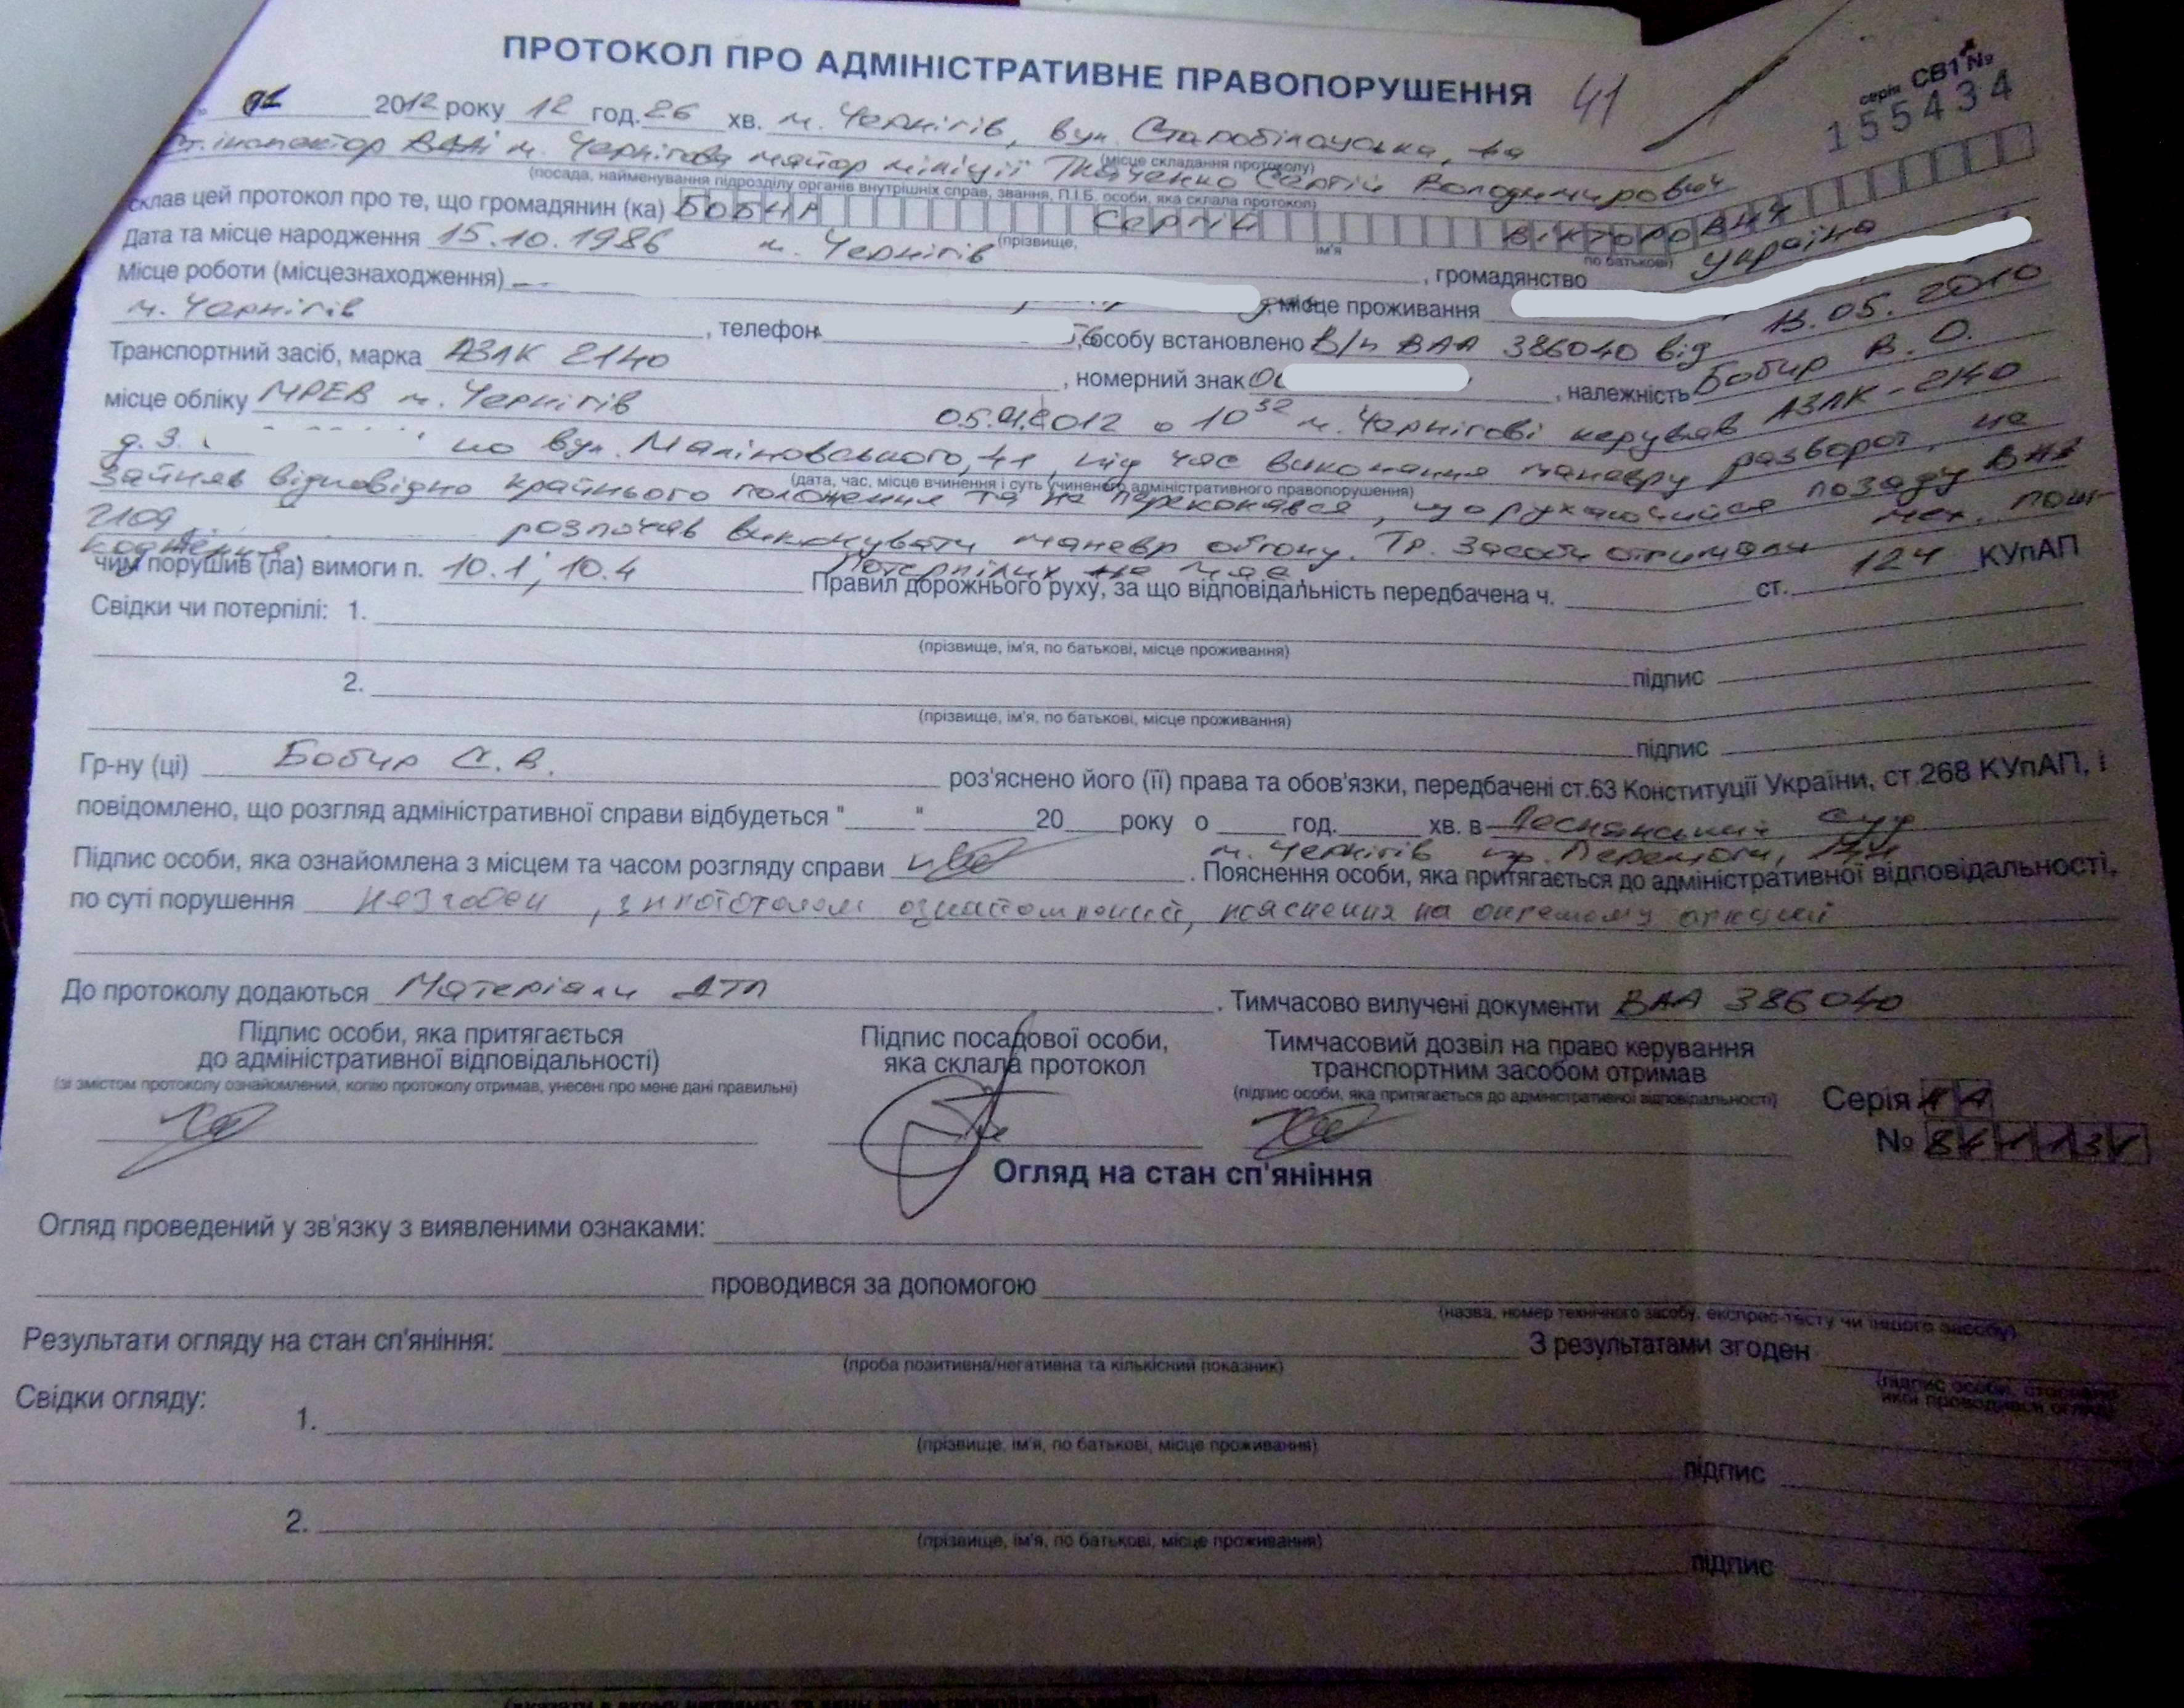 ПРОТОКОЛ ПРО АДМІНІСТРАТИВНЕ ПРАВОПОРУШЕННЯ 41
серія СВ1 №
155434
2012 року 12 год. 26 хв. м. Чернігів, вул. Старобілоуська,
(місце складання протоколу)
Ст. інспектор ВДАІ м. Чернігова майор міліції Ткаченко Сергій Володимирович
(посада, найменування підрозділу органів внутрішніх справ, звання, П.І.Б. особи, яка склала протокол)
склав цей протокол про те, що громадянин (ка) БОБИР Сергій ВікторовИЧ
(прізвище, ім'я по батькові)
Дата та місце народження 15.10.1986 м. Чернігів, громадянство Україна
Місце роботи (місцезнаходження) , місце проживання
м. Чернігів, телефон 56, особу встановлено В/п ВАА 386040 від 13.05.2010
Транспортний засіб, марка АЗЛК 2140, номерний знак , належність Бобир В. О.
місце обліку МРЕВ м. Чернігів 05.01.2012 о 10 32 м. Чернігові керував АЗЛК-2140
д.з. по вул. Маліновського, 41, під час виконання маневру разворот, не
(дата, час, місце вчинення і суть учиненого адміністративного правопорушення)
зайняв відповідно крайнього положення та не переконався, що рухаючийся позаду ВАЗ
2109 розпочав виконувати маневр обгону. Тр. засоби отримали мех. пош-
кодження. Потерпілих не має.
чим порушив (ла) вимоги п. 10.1; 10.4 Правил дорожнього руху, за що відповідальність передбачена ч. ст. 124 КУпАП
Свідки чи потерпілі: 1.
(прізвище, ім'я, по батькові, місце проживання)
підпис
2.
(прізвище, ім'я, по батькові, місце проживання)
підпис
Гр-ну (ці) Бобир С. В. роз'яснено його (її) права та обов'язки, передбачені ст.63 Конституції України, ст.268 КУпАП, і
повідомлено, що розгляд адміністративної справи відбудеться " " 20 року о год. хв. в Деснянський суд
м. Чернігів пр. Перемоги,
Підпис особи, яка ознайомлена з місцем та часом розгляду справи . Пояснення особи, яка притягається до адміністративної відповідальності,
по суті порушення незгоден, з протоколом ознайомлений, пояснення на окремому аркуші
До протоколу додаються Матеріали ДТП. Тимчасово вилучені документи ВАА 386040
Підпис особи, яка притягається
до адміністративної відповідальності)
(зі змістом протоколу ознайомлений, копію протоколу отримав, унесені про мене дані правильні)
Підпис посадової особи,
яка склала протокол
Тимчасовий дозвіл на право керування
транспортним засобом отримав
(підпис особи, яка притягається до адміністративної відповідальності)
Серія
№
Огляд на стан сп'яніння
Огляд проведений у зв'язку з виявленими ознаками:
проводився за допомогою
(назва, номер технічного засобу, експрес-тесту чи іншого засобу)
Результати огляду на стан сп'яніння: З результатами згоден
(проба позитивна/негативна та кількісний показник)
(підпис особи, стосовно
якої проводився огляд)
Свідки огляду:
1.
(прізвище, ім'я, по батькові, місце проживання)
підпис
2.
(прізвище, ім'я, по батькові, місце проживання)
підпис